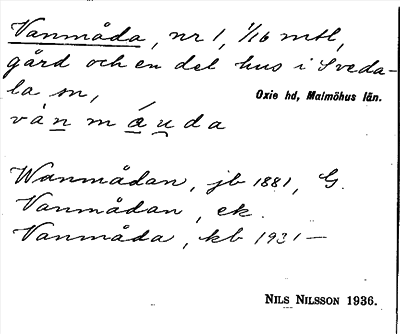 Vanmåda, nr 1, 1/16 mtl,
gård och en del hus i Sveda-
la sn,
Oxie hd, Malmöhus län.
vànmáuda
Wanmådan, jb 1881, G.
Vanmådan, ek.
Vanmåda, kb 1931—
NILS NILSSON 1936.